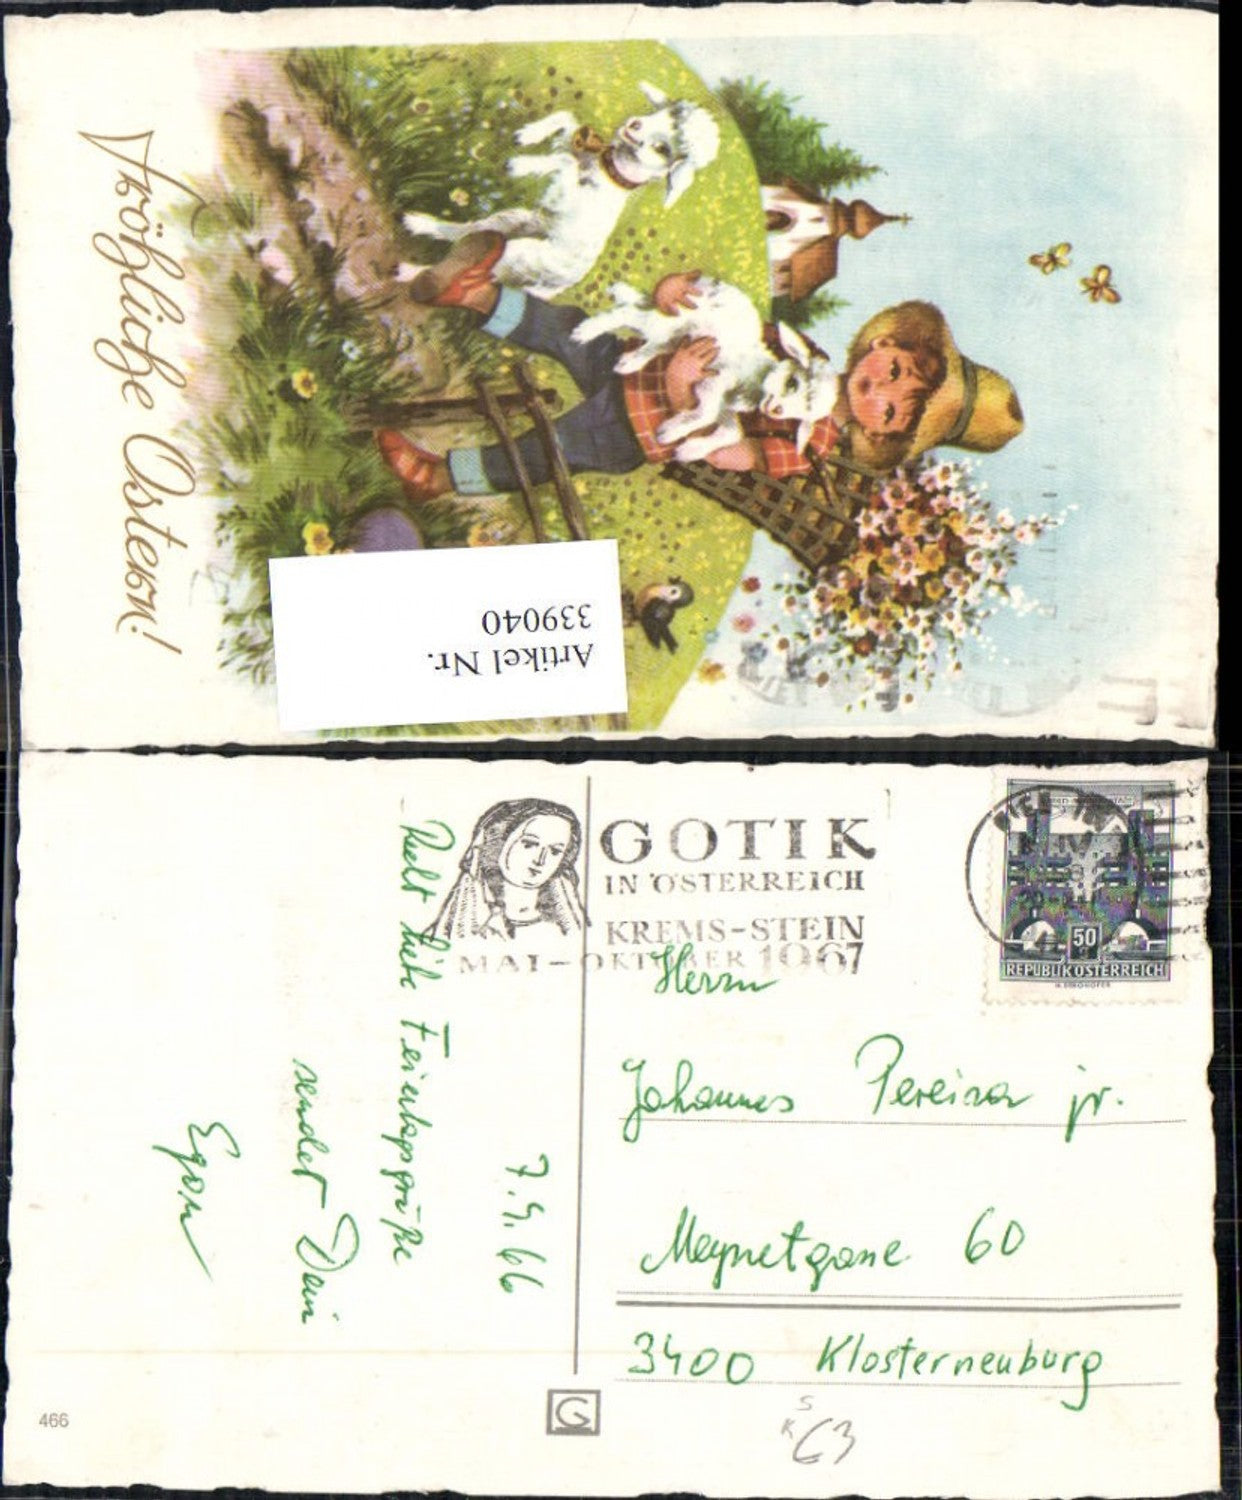 Fröhliche Ostern!
Artikel Nr.
339040
GOTIK
IN ÖSTERREICH
KREMS-STEIN
MAI-OKTOBER 1967
50
REPUBLIK ÖSTERREICH
7.4.66
Recht liebe Feiertagsgrüße
sendet Dein
Egon
Herrn
Johannes Pereira jr.
60
3400 Klosterneuburg
466
G
63